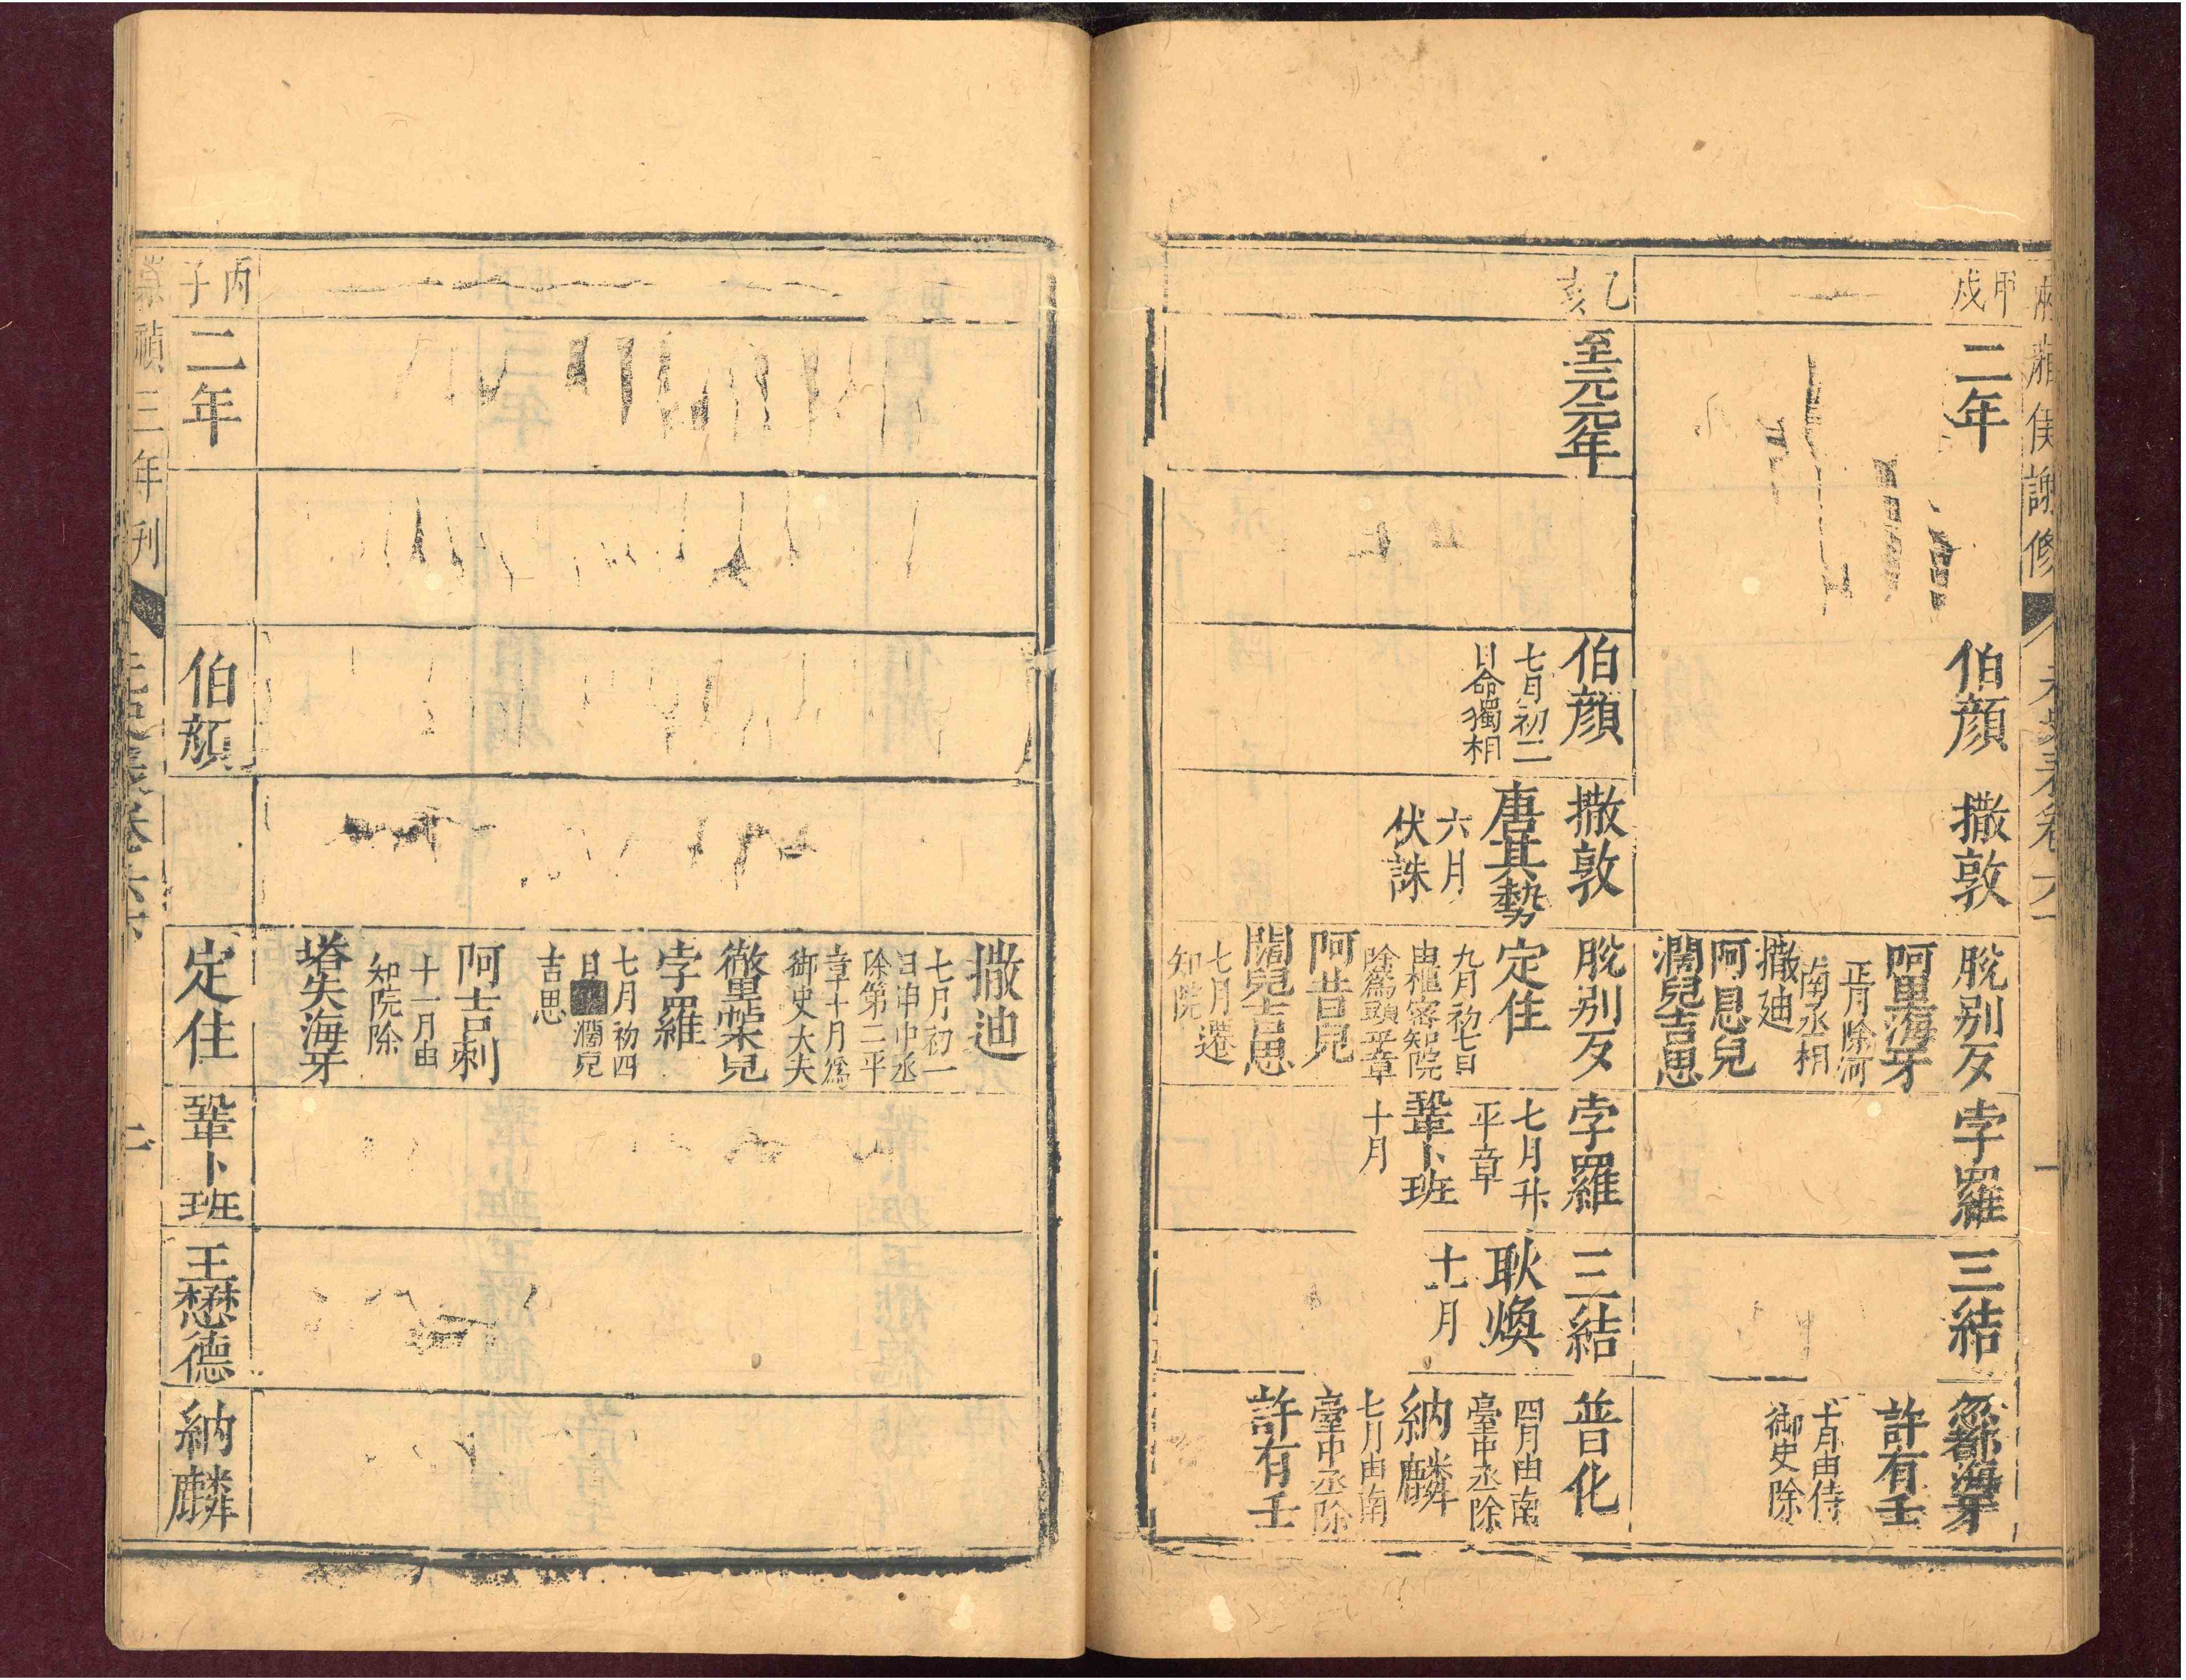 甲
戌
二年
伯顔
撒敦
脫別歹
阿里海牙
正月除河
南丞相
撒廸
阿昔兒
濶兒吉思
孛羅
三結
忽都海牙
許有壬
十月由侍
御史除
乙
亥
至元元年
伯顔
七月初二
日命獨相
撒敦
唐其勢
六月
伏誅
脫別歹
定住
九月初七日
由樞密知院
除爲頭平章
阿昔兒
闊兒吉思
七月遷
知院
孛羅
七月升
平章
鞏卜班
十月
三結
耿煥
十一月
普化
四月由南
臺中丞除
納麟
七月由南
臺中丞除
許有壬
撒迪
七月初一
日由中丞
除第二平
章十月爲
御史大夫
徹里帖木兒
孛羅
七月初四
日濶兒
吉思
阿吉剌
十一月由
知院除
塔失海牙
丙
子
二年
伯顔
定住
鞏卜班
王懋德
納麟
崇禎三年刊